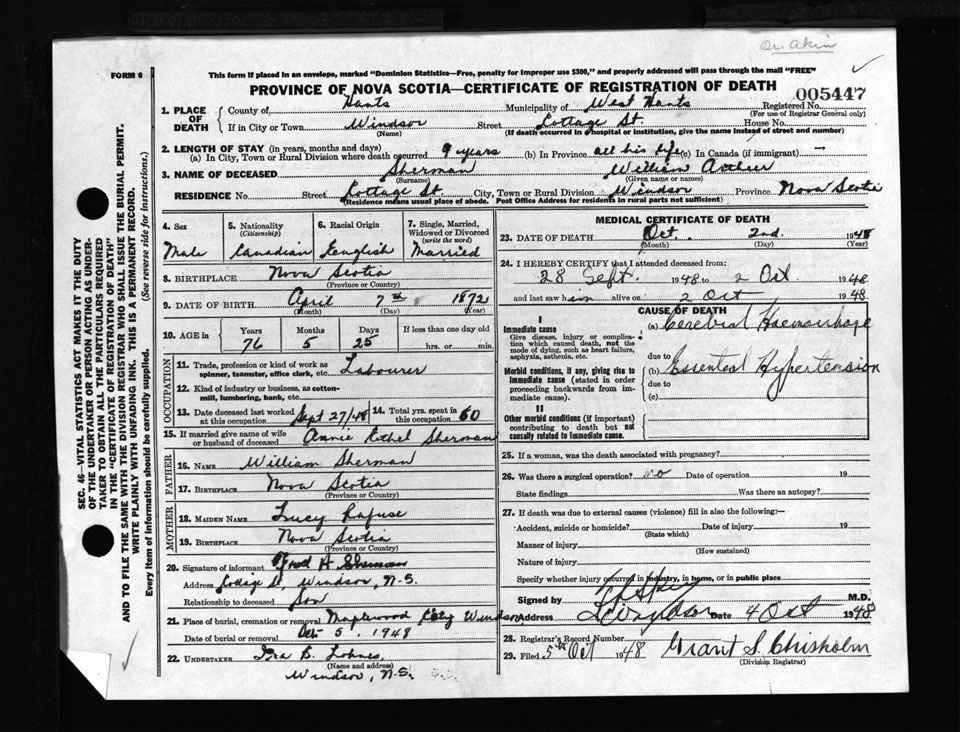 Dr. Akin
FORM 6
This form if placed in an envelope, marked "Dominion Statistics—Free, penalty for improper use $300," and properly addressed will pass through the mail "FREE"
PROVINCE OF NOVA SCOTIA—CERTIFICATE OF REGISTRATION OF DEATH
005447
1. PLACE OF DEATH
County of Hants Municipality of West Hants Registered No.
(For use of Registrar General only)
If in City or Town Windsor Street Cottage St. House No.
(Name) (If death occurred in hospital or institution, give the name instead of street and number)
2. LENGTH OF STAY (in years, months and days)
(a) In City, Town or Rural Division where death occurred 9 years (b) In Province all his life (c) In Canada (if immigrant) —
3. NAME OF DECEASED Sherman William Arthur
(Surname) (Given name or names)
RESIDENCE No. Street Cottage St. City, Town or Rural Division Windsor Province Nova Scotia
(Residence means usual place of abode. Post Office Address for residents in rural parts not sufficient)
SEC. 46—VITAL STATISTICS ACT MAKES IT THE DUTY
OF THE UNDERTAKER OR PERSON ACTING AS UNDER-
TAKER TO OBTAIN ALL THE PARTICULARS REQUIRED
IN THE "CERTIFICATE OF REGISTRATION OF DEATH"
AND TO FILE THE SAME WITH THE DIVISION REGISTRAR WHO SHALL ISSUE THE BURIAL PERMIT.
WRITE PLAINLY WITH UNFADING INK. THIS IS A PERMANENT RECORD.
Every item of information should be carefully supplied. (See reverse side for instructions.)
4. Sex
Male
5. Nationality
(Citizenship)
Canadian
6. Racial Origin
English
7. Single, Married, Widowed or Divorced
(write the word)
Married
8. BIRTHPLACE Nova Scotia
(Province or Country)
9. DATE OF BIRTH April 7th 1872
(Month) (Day) (Year)
10. AGE in Years Months Days If less than one day old
76 5 25 hrs. or min.
OCCUPATION
11. Trade, profession or kind of work as
spinner, teamster, office clerk, etc. Labourer
12. Kind of industry or business, as cotton-
mill, lumbering, bank, etc.
13. Date deceased last worked
at this occupation Sept 27/48
14. Total yrs. spent in
this occupation 60
15. If married give name of wife
or husband of deceased Annie Ethel Sherman
FATHER
16. NAME William Sherman
17. BIRTHPLACE Nova Scotia
(Province or Country)
MOTHER
18. MAIDEN NAME Lucy Rafuse
19. BIRTHPLACE Nova Scotia
(Province or Country)
20. Signature of informant Fred A Sherman
Address Cottage St, Windsor, N.S.
Relationship to deceased Son
21. Place of burial, cremation or removal Maplewood Cty Windsor
Date of burial or removal Oct 5, 1948
22. UNDERTAKER Ira B. Lohnes
(Name and address)
Windsor, N.S.
MEDICAL CERTIFICATE OF DEATH
23. DATE OF DEATH Oct. 2nd. 1948
(Month) (Day) (Year)
24. I HEREBY CERTIFY that I attended deceased from:
28 Sept. 1948 to 2 Oct 1948
and last saw him alive on 2 Oct 1948
CAUSE OF DEATH
I
Immediate cause
Give disease, injury or complica-
tion which caused death, not the
mode of dying, such as heart failure,
asphyxia, asthenia, etc.
(a) Cerebral Haemorrhage
due to
Morbid conditions, if any, giving rise to
immediate cause (stated in order
proceeding backwards from im-
mediate cause).
(b) Essential Hypertension
due to
(c)
II
Other morbid conditions (if important)
contributing to death but not
causally related to immediate cause.
25. If a woman, was the death associated with pregnancy?
26. Was there a surgical operation? no Date of operation 19
State findings Was there an autopsy?
27. If death was due to external causes (violence) fill in also the following:—
Accident, suicide or homicide? Date of injury 19
(State which)
Manner of injury
(How sustained)
Nature of injury
Specify whether injury occurred in industry, in home, or in public place
Signed by M.D.
Address Windsor Date 4 Oct 1948
28. Registrar's Record Number
29. Filed 5th Oct 1948 Grant S. Chisholm
(Division Registrar)